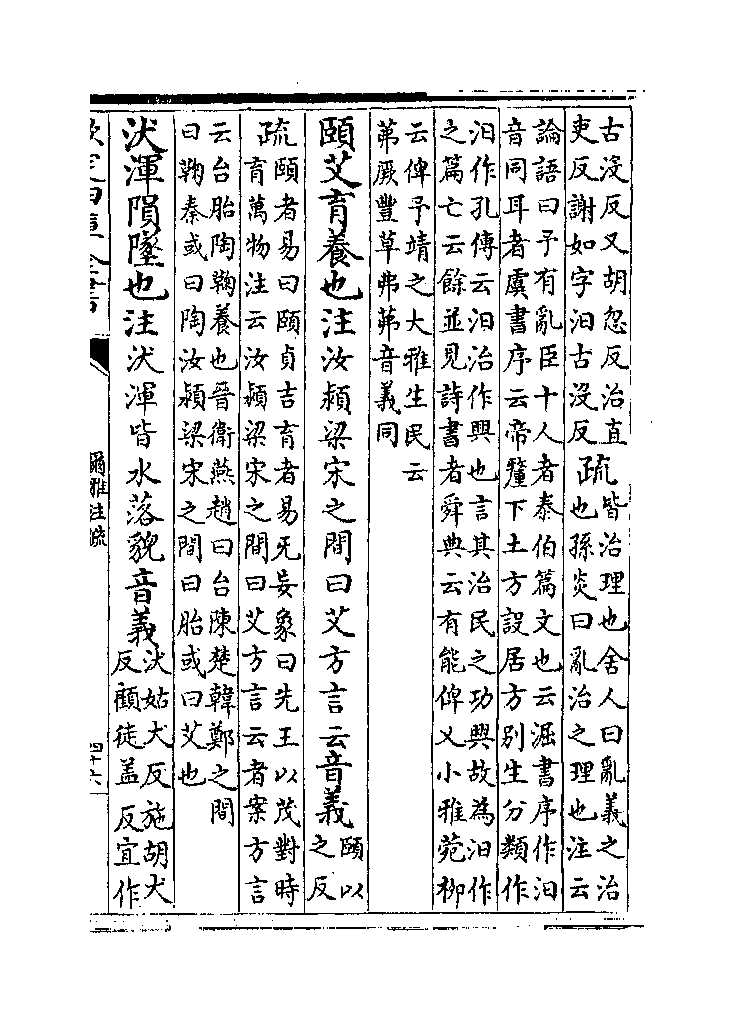 古沒反又胡忽反治直
吏反謝如字汩古沒反
疏皆治理也舍人曰亂義之治
也孫炎曰亂治之理也注云
論語曰予有亂臣十人者泰伯篇文也云淈書序作汩
音同耳者虞書序云帝釐下土方設居方别生分類作
汩作孔傳云汩治作興也言其治民之功興故為汩作
之篇亡云餘並見詩書者舜典云有能俾乂小雅菀柳
云俾予靖之大雅生民云
茀厥豐草弗茀音義同
頤艾育養也注汝潁梁宋之間曰艾方言云音義頤以
之反
疏頤者易曰頤貞吉育者易旡妄象曰先王以茂對時
育萬物注云汝潁梁宋之間曰艾方言云者案方言
云台胎陶鞠養也晉衛燕趙曰台陳楚韓鄭之間
曰鞠秦或曰陶汝潁梁宋之間曰胎或曰艾也
汱渾隕墜也注汱渾皆水落貌音義汱姑犬反施胡犬
反顧徒蓋反宜作
爾雅注疏
四十六